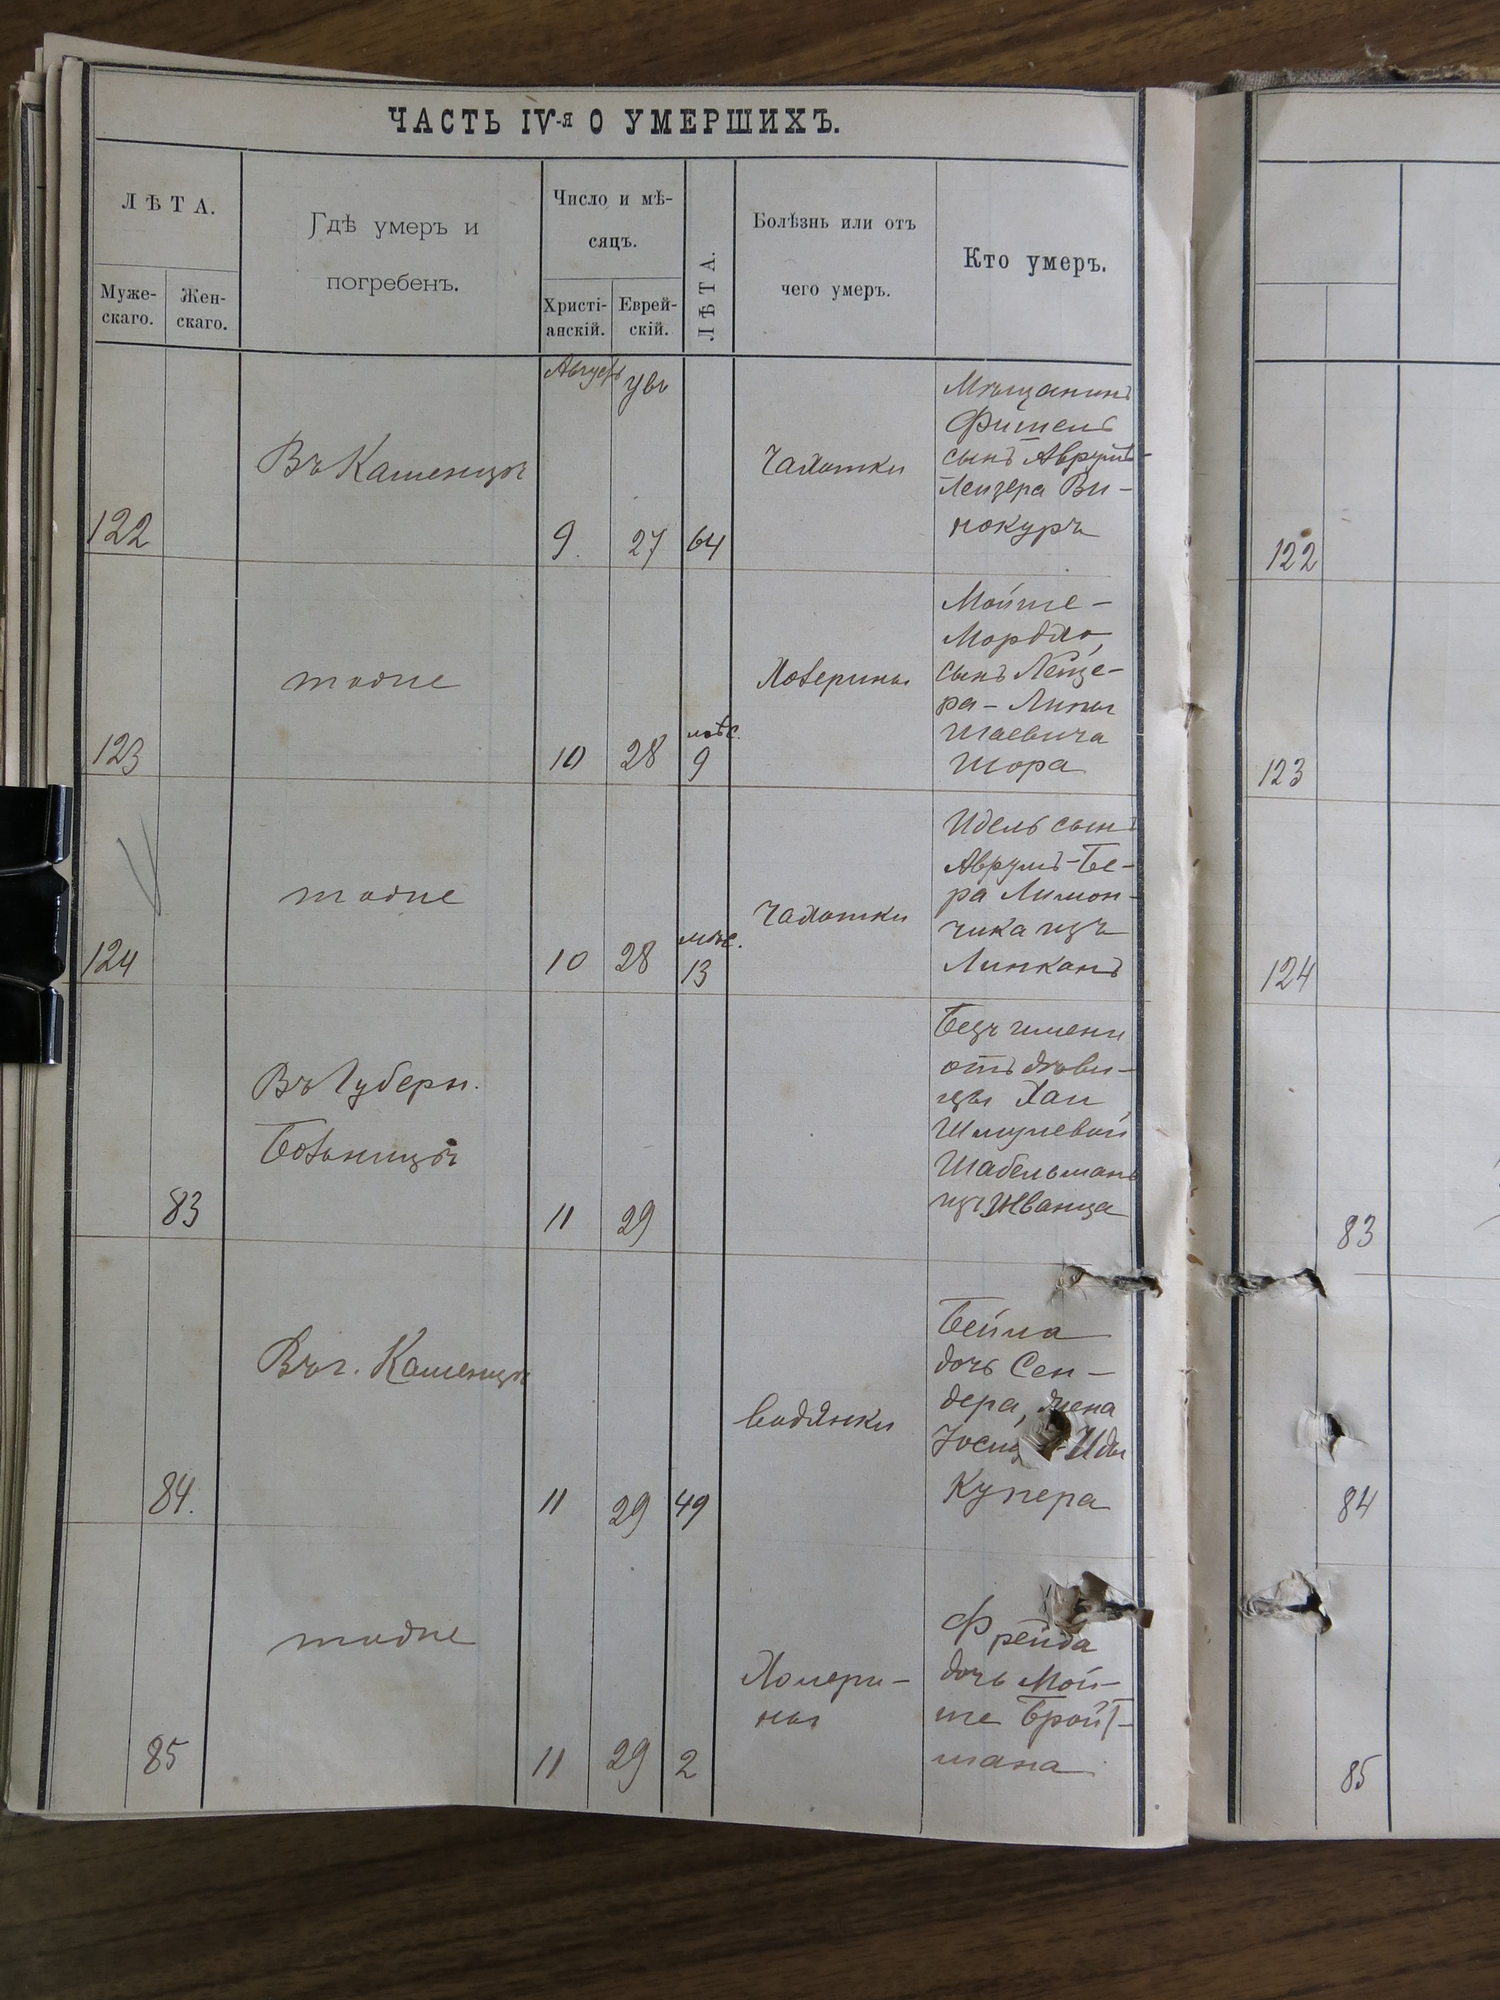 ЧАСТЬ IV-я О УМЕРШИХЪ.
ЛѢТА.
Муже-
скаго.
Жен-
скаго.
Гдѣ умеръ и
погребенъ.
Число и мѣ-
сяцъ.
Христі-
анскій.
Еврей-
скій.
ЛѢТА.
Болѣзнь или отъ
чего умеръ.
Кто умеръ.
122
Въ Каменцѣ
Августъ
9.
27
64
Чахотки
Мѣщанинъ
Фишель
сынъ Аврумъ-
Лейзера Ви-
нокуръ
122
123
тодпе
10
28
мѣс.
9
Мойше-
Мордко,
сынъ Лейзе-
ра-Липы
Шаевича
Шора
123
124
тодпе
10
28
мѣс.
13
Чахотки
Идель сынъ
Аврумъ-Бе-
ра Лимон-
чика изъ
Липканъ
124
83
Въ Губерн.
Больницѣ
11
29
Безъ имени
отъ дѣви-
цы Хаи
Шмулевой
Шабельманъ
изъ Жванца
83
84.
Въ г. Каменцѣ
11
29
49
водянки
Бейла
дочь Сен-
дера, жена
Иды
Купера
84
85
тодпе
11
29
2
Фрейда
дочь Мой-
ше Бройт-
мана
85